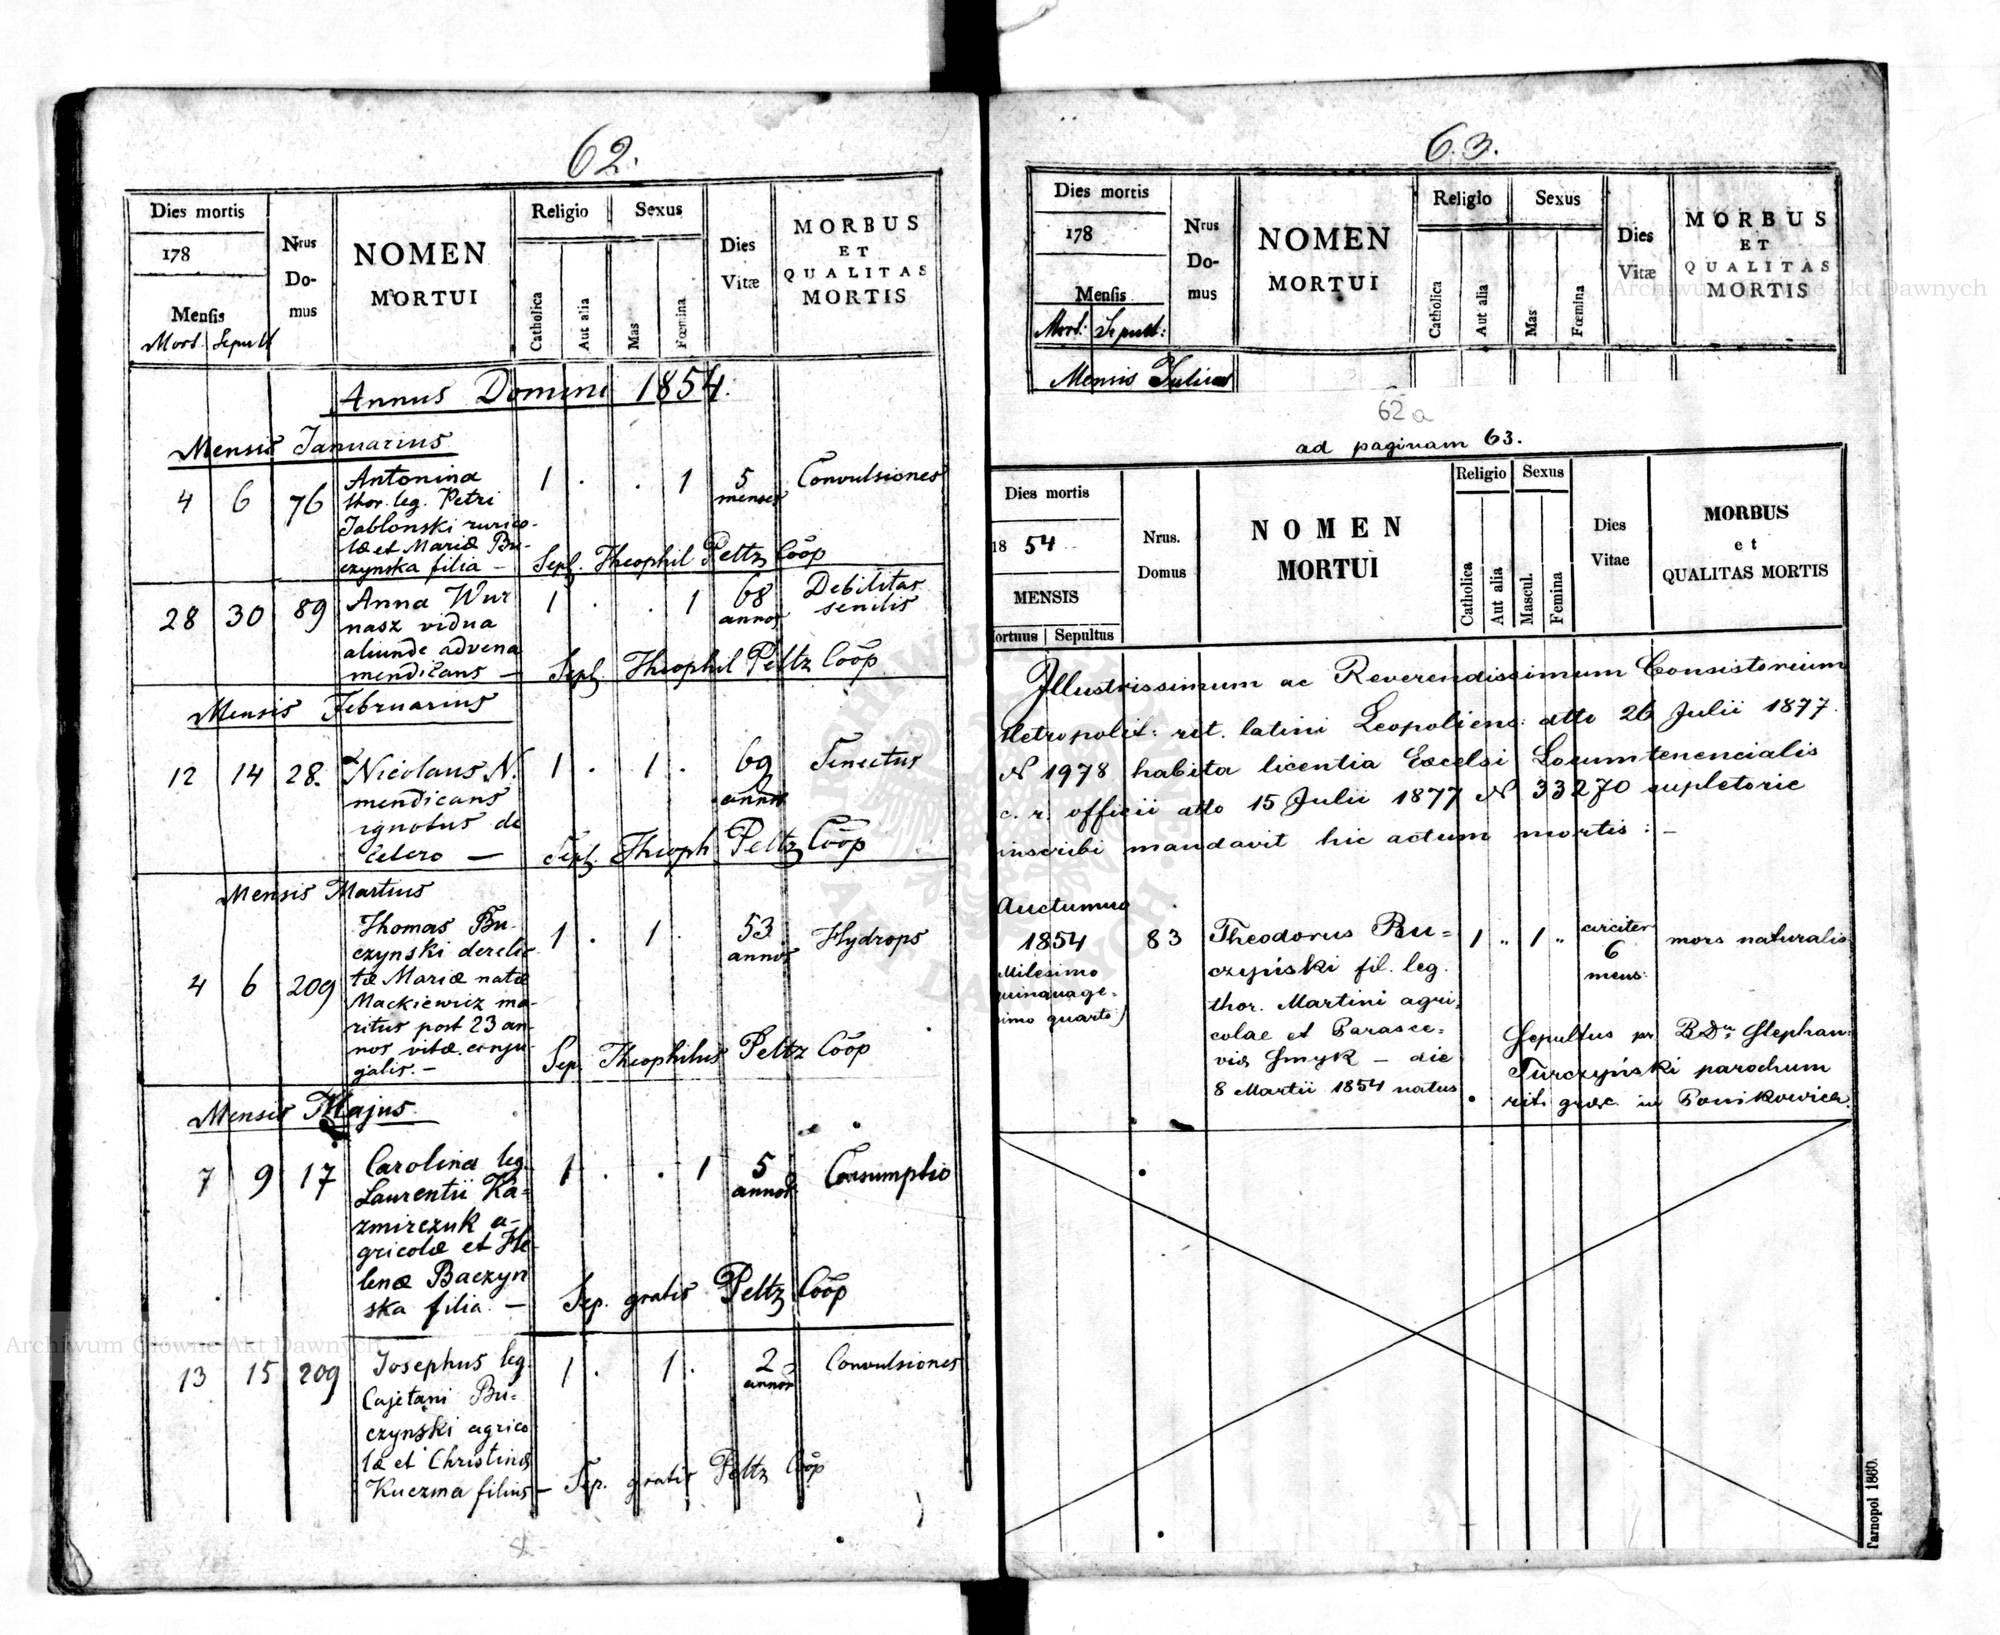 62.
Dies mortis
178
Mensis
Mort. Sepult
Nrus
Do-
mus
NOMEN
MORTUI
Religio
Catholica
Aut alia
Sexus
Mas
Fœmina
Dies
Vitæ
MORBUS
ET
QUALITAS
MORTIS
Annus Domini 1854.
Mensis Januarius
4 6 76
Antonina
thor. leg. Petri
Jablonski rurico-
læ et Mariæ Bu-
czynska filia —
1 . . 1
5
menses
Convulsiones
Sepl. Theophil Peltz Coop
28 30 89
Anna Wur
nasz vidua
aliunde advena
mendicans —
1 . . 1
68
annos
Debilitas
senilis
Sepl. Theophil Peltz Coop
Mensis Februarius
12 14 28.
Nicolaus N.
mendicans
ignotus de
cetero —
1 . 1 .
69
annos
Senectus
Sepl. Theoph Peltz Coop
Mensis Martius
4 6 209
Thomas Bu-
czynski derelic-
tæ Mariæ natæ
Mackiewicz ma-
ritus post 23 an-
nos vitæ conju-
galis. —
1 . 1 .
53
annos
Hydrops
Sep. Theophilus Peltz Coop
Mensis Majus
7 9 17
Carolina leg.
Laurentii Ka-
zmirczuk a-
gricolæ et He-
lenæ Baczyn
ska filia. —
1 . . 1
5
annos
Consumptio
Sep. gratis Peltz Coop
13 15 209
Josephus leg.
Cajetani Bu-
czynski agrico
læ et Christinæ
Kuczma filius —
1 . 1 .
2
annos
Convulsiones
Sep. gratis Peltz Coop
63.
Dies mortis
178
Mensis
Mort: Sepult:
Nrus
Do-
mus
NOMEN
MORTUI
Religio
Catholica
Aut alia
Sexus
Mas
Fœmina
Dies
Vitæ
MORBUS
ET
QUALITAS
MORTIS
Mensis Julius
62 a
ad paginam 63.
Dies mortis
18 54
MENSIS
ortuus Sepultus
Nrus.
Domus
NOMEN
MORTUI
Religio
Catholica
Aut alia
Sexus
Mascul.
Femina
Dies
Vitae
MORBUS
et
QUALITAS MORTIS
Illustrissimum ac Reverendissimum Consistorium
Metropolit: rit. latini Leopoliens: dtto 26 Julii 1877.
N 1978 habita licentia Excelsi Locumtenencialis
c. r. officii dtto 15 Julii 1877 N 33270 supletorie
inscribi mandavit hic actum mortis : —
Auctumno
1854
Milesimo
quinquage-
simo quarto)
83
Theodorus Bu=
czyński fil. leg.
thor. Martini agri,
colae et Parasce=
vis Smyk — die
8 Martii 1854 natus
1 „ 1 „
circiter
6
mens:
mors naturalis
Sepultus pr B. D. Stephan:
Turczyński parochum
rit. græc. in Ponikowica.
Tarnopol 1860.
Archiwum Główne Akt Dawnych